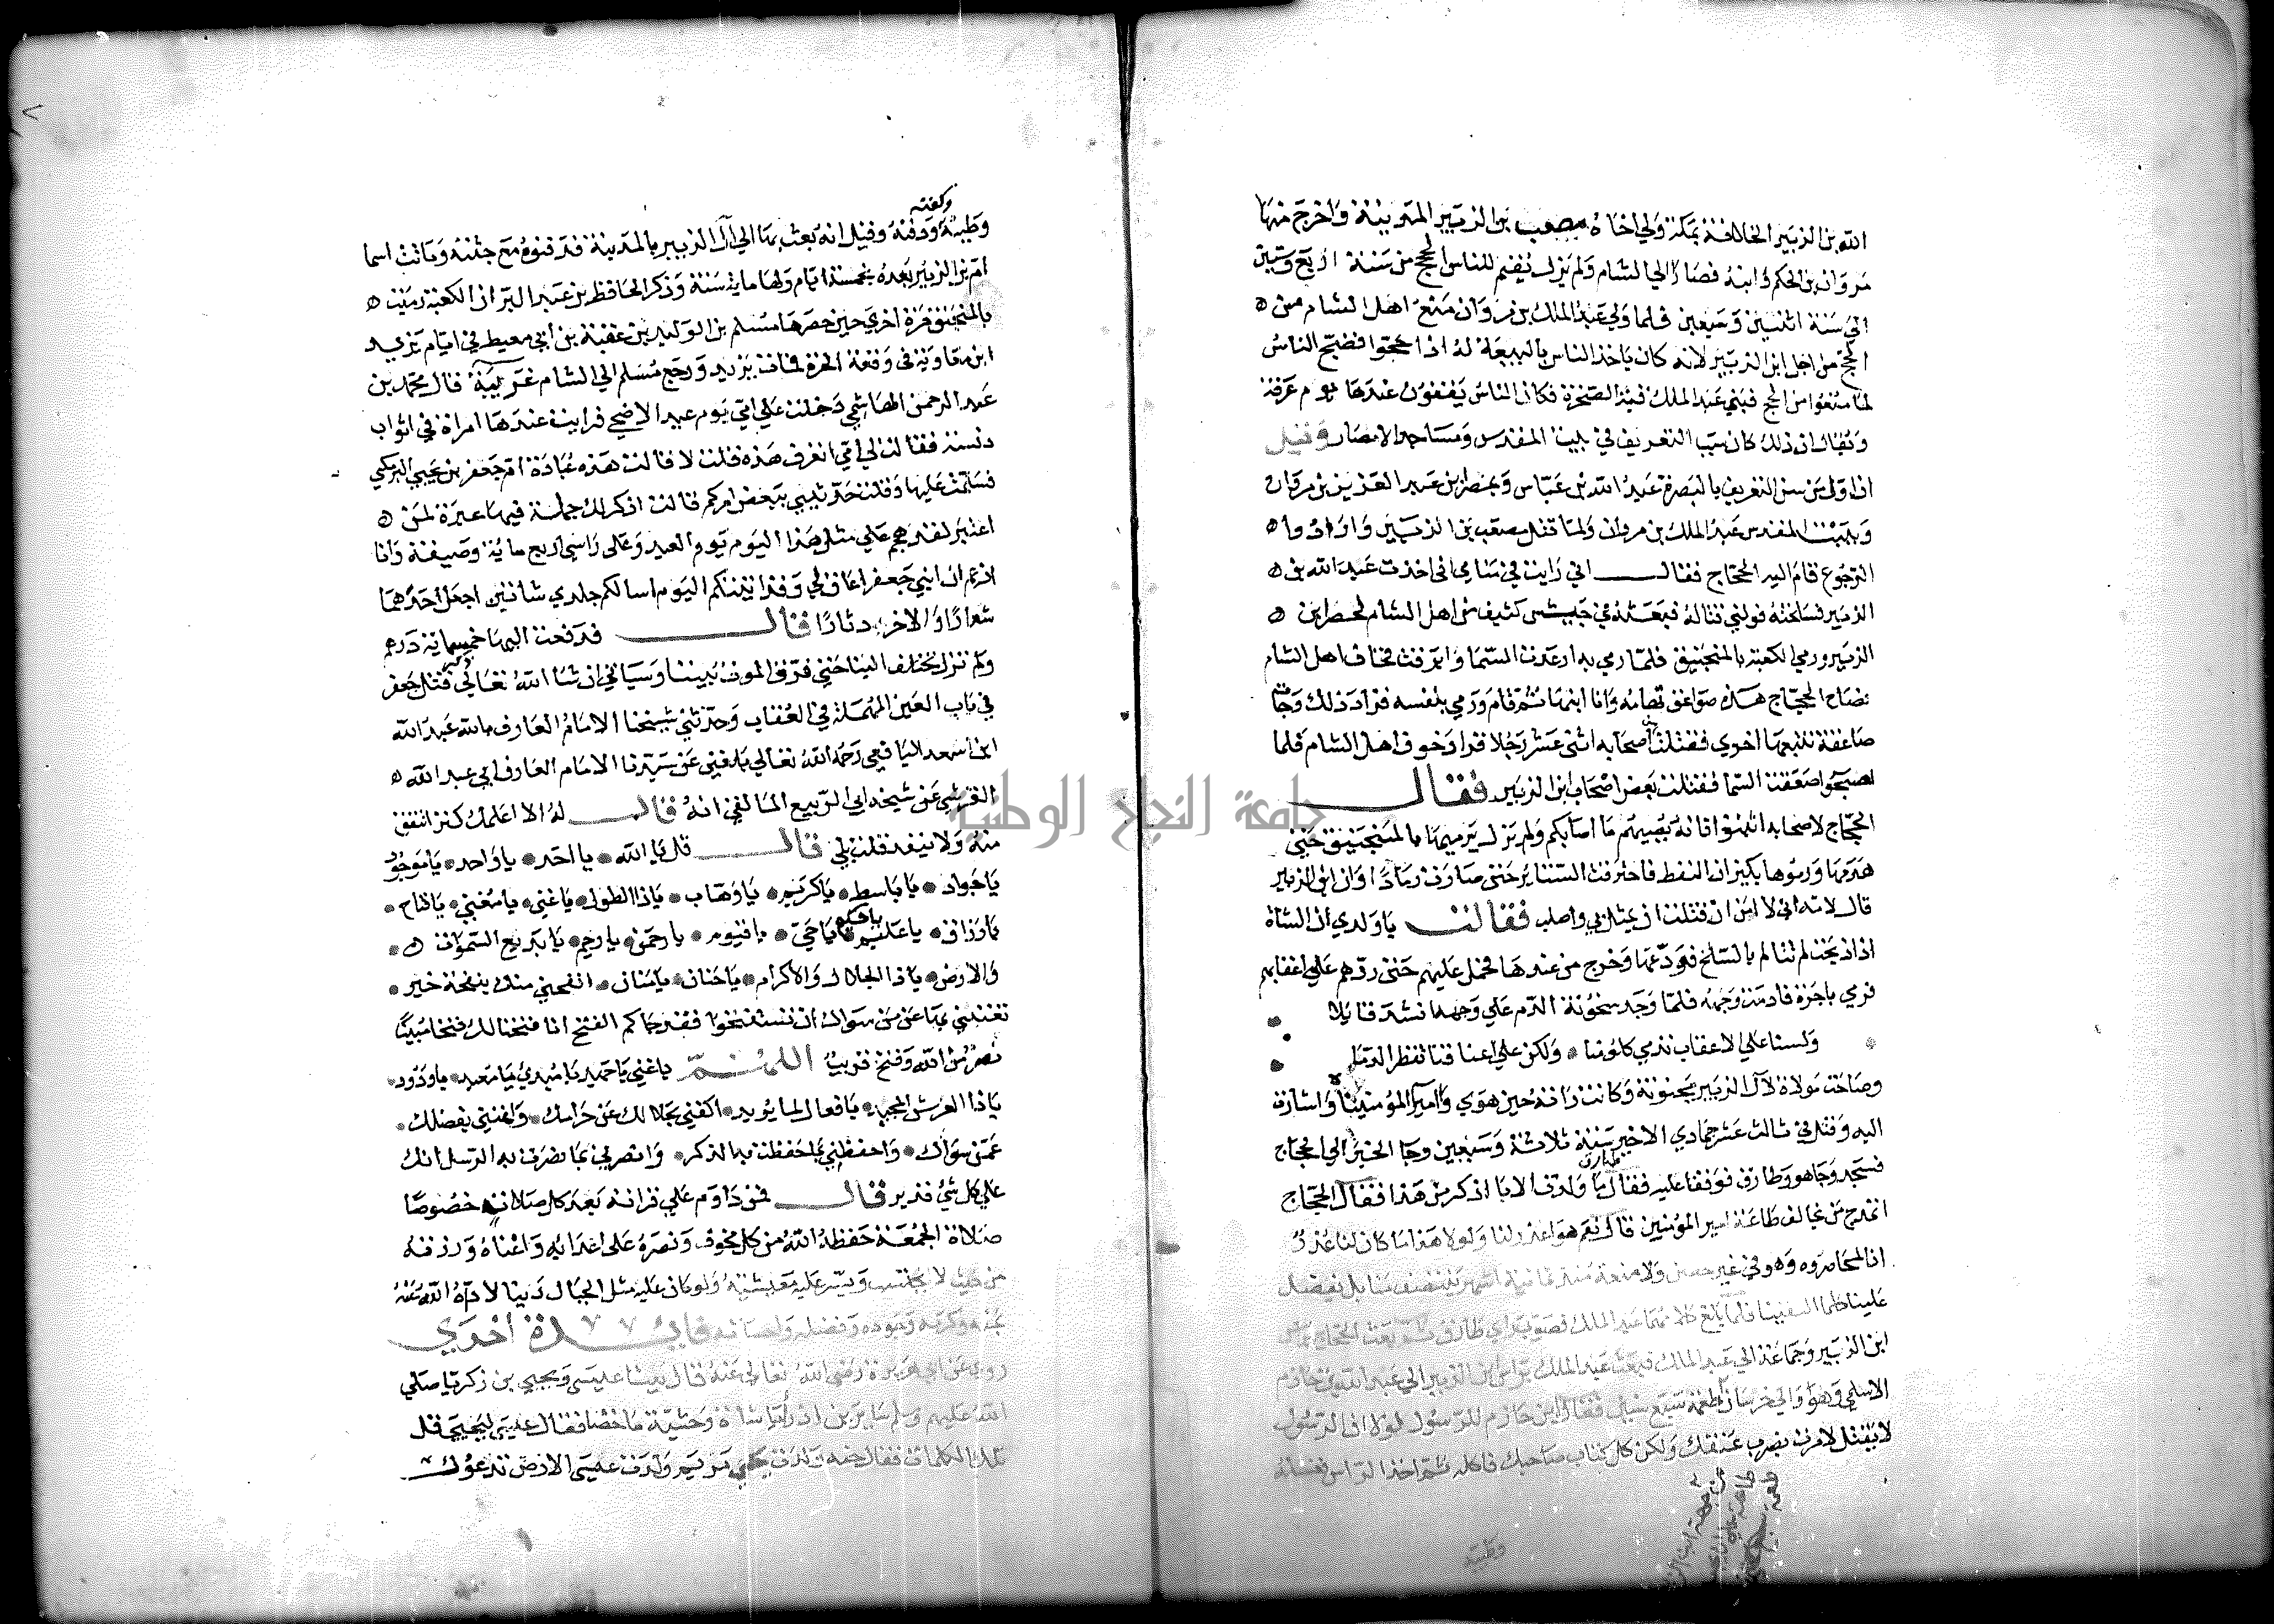 الله بن الزبير الخلافة بمكة ولي اخاه مصعب بن الزبير المدينة واخرج منها
مروان بن الحكم وابنه فصارا الي الشام ولم يزل يقيم للناس الحج من سنة اربع وستين
الي سنة اثنين وسبعين فلما ولي عبد الملك بن مروان منع اهل الشام من
الحج من اجل ابن الزبير لانه كان ياخذ الناس بالبيعة له اذا حجوا فضج الناس
لما منعوا من الحج فبني عبد الملك قبة الصخرة فكان الناس يقفون عندها يوم عرفة
ويقال ان ذلك كان سبب التعريف في بيت المقدس ومساجد الامصار وقيل
ان اول من سن التعريف بالبصرة عبد الله بن عباس وبمصر ابن عبد العزيز بن مروان
وببيت المقدس عبد الملك بن مروان ولما قتل مصعب بن الزبير وارادوا
الرجوع قام اليه الحجاج فقال اني رايت في منامي اني اخذت عبد الله بن
الزبير فسلخته فولني قتاله فبعثه في جيش كثيف من اهل الشام فحصر ابن
الزبير ورمي الكعبة بالمنجنيق فلما رمي به ارعدت السما وابرقت فخاف اهل الشام
فصاح الحجاج هذه صواعق تهامه وانا ابنها ثم قام ورمي بنفسه فزاد ذلك وجات
صاعقة تتبعها اخري فقتلت من اصحابه اثني عشر رجلا فزاد خوف اهل الشام فلما
اصبحوا صعقت السما فقتلت بعض اصحاب ابن الزبير فقال
الحجاج لاصحابه اثبتوا فانه يصيبهم ما اصابكم ولم يزل يرميها بالمنجنيق حتي
هدمها ورموها بكيزان النفط فاحترقت الستاير حتي صارت رمادا وان ابن الزبير
قال لامه اني لا امن ان قتلت ان يمثل بي واصلب فقالت ياولدي ان الشاة
اذا ذبحت لم تتالم بالسلخ فودعها وخرج من عندها فحمل عليهم حتي ردهم علي اعقابهم
فرمي باجرة فادمت وجهه فلما وجد سخونة الدم علي وجهه انشد قايلا
ولسنا علي الاعقاب تدمي كلومنا ولكن علي اعقابنا تقطر الدما
وصاحت مولاة لآل الزبير مجنونة وكانت راته حين هوي وا امير المؤمنيناه واشارت
اليه وقتل في ثالث عشر جمادي الاخير سنة ثلاثة وسبعين وجا الخبر الي الحجاج
فسجد وجا هو وطارق فوقفا عليه فقال طارق ما ولدت الابا اذكر من هذا فقال الحجاج
اتمدح من يخالف طاعة امير المؤمنين قال نعم هو اعذر لنا ولولا هذا ما كان لنا عذر
انا لمحاصروه وهو في غير حصن ولا منعة منذ ثمانية اشهر ينتصف منا بل يفضل
علينا كلما التقينا فلما بلغ كلامهما عبد الملك فصوب راي طارق ثم بعث الحجاج براس
ابن الزبير وجماعة الي عبد الملك فبعث عبد الملك براس ابن الزبير الي عبد الله بن خازم
الاسلمي وهو والي خرسان طعمة سبع سنين فقال ابن خازم للرسول لولا ان الرسول
لا يقتل لامرت بضرب عنقك ولكن كل كتاب صاحبك فاكله ثم اخذ الراس فغسله
وطيبه
وكفنه
وطيبه ودفنه وقيل انه بعث بها الي آل الزبير بالمدينة فدفنوه مع جثته وماتت اسما
ام بن الزبير بعده بخمسة ايام ولها ماية سنة وذكر الحافظ بن عبد البر ان الكعبة رميت
بالمنجنيق مرة اخري حين حصرها مسلم بن الوليد بن عقبة بن ابي معيط في ايام يزيد
ابن معاوية في وقعة الحرة فمات يزيد ورجع مسلم الي الشام غريبة قال محمد بن
عبد الرحمن الهاشمي دخلت علي امي يوم عيد الاضحي فرايت عندها امراة في اثواب
دنسة فقالت لي امي اتعرف هذه قلت لا قالت هذه عبادة ام جعفر بن يحيي البرمكي
فسلمت عليها وقلت حدثيني ببعض امركم قالت اذكر لك جملة فيها عبرة لمن
اعتبر لقد هجم علي مثل هذا اليوم يوم العيد وعلي راسي اربع ماية وصيفة وانا
ازعم ان ابني جعفر اعاق لي وقد اتيتكم اليوم اسالكم جلدي شاتين اجعل احدهما
شعارا والاخر دثارا قال فدفعت اليها خمسماية درهم
ولم تزل تختلف الينا حتي فرق الموت بيننا وسياتي ان شا الله تعالي ذكر قتل جعفر
في باب العين المهملة في العقاب وحدثني شيخنا الامام العارف بالله عبد الله
ابن اسعد اليافعي رحمه الله تعالي بلغني عن سيدنا الامام العارف ابي عبد الله
القرشي عن شيخه ابي الربيع المالقي انه قال له الا اعلمك كنز اتنفق
منه ولا ينفد قلت بلي قال قل يا الله يا احد يا واحد يا موجود
يا جواد يا باسط يا كريم يا وهاب يا ذا الطول يا غني يا مغني يا فتاح
يا رزاق يا عليم يا حكيم يا حي يا قيوم يا رحمن يا رحيم يا بديع السموات
والارض يا ذا الجلال والاكرام يا حنان يا منان انفحني منك بنفحة خير
تغنيني بها عن من سواك ان تستفتحوا فقد جاكم الفتح انا فتحنا لك فتحا مبينا
نصر من الله وفتح قريب اللهم يا غني يا حميد يا مبدئ يا معيد يا ودود
يا ذا العرش المجيد يا فعال لما يريد اكفني بحلالك عن حرامك واغنني بفضلك
عمن سواك واحفظني بما حفظت به الذكر وانصرني بما نصرت به الرسل انك
علي كل شئ قدير قال فمن داوم علي قراته بعد كل صلاة خصوصا
صلاة الجمعة حفظه الله من كل مخوف ونصره علي اعدايه واغناه ورزقه
من حيث لا يحتسب ويسر عليه معيشته ولو كان عليه مثل الجبال دينا لاداه الله عنه
بمنه وكرمه وجوده وفضله واحسانه فايدة اخري
روي عن ابي هريرة رضي الله تعالي عنه قال بينا عيسي ويحيي بن زكريا صلي
الله عليهم وسلم سايرين اذ رايا شاة وحشية ماخضا فقال عيسي ليحيي قل
تلك الكلمات فقال حنه ولدت يحيي مريم ولدت عيسي الارض تدعوك
جامعة النجاح الوطنية